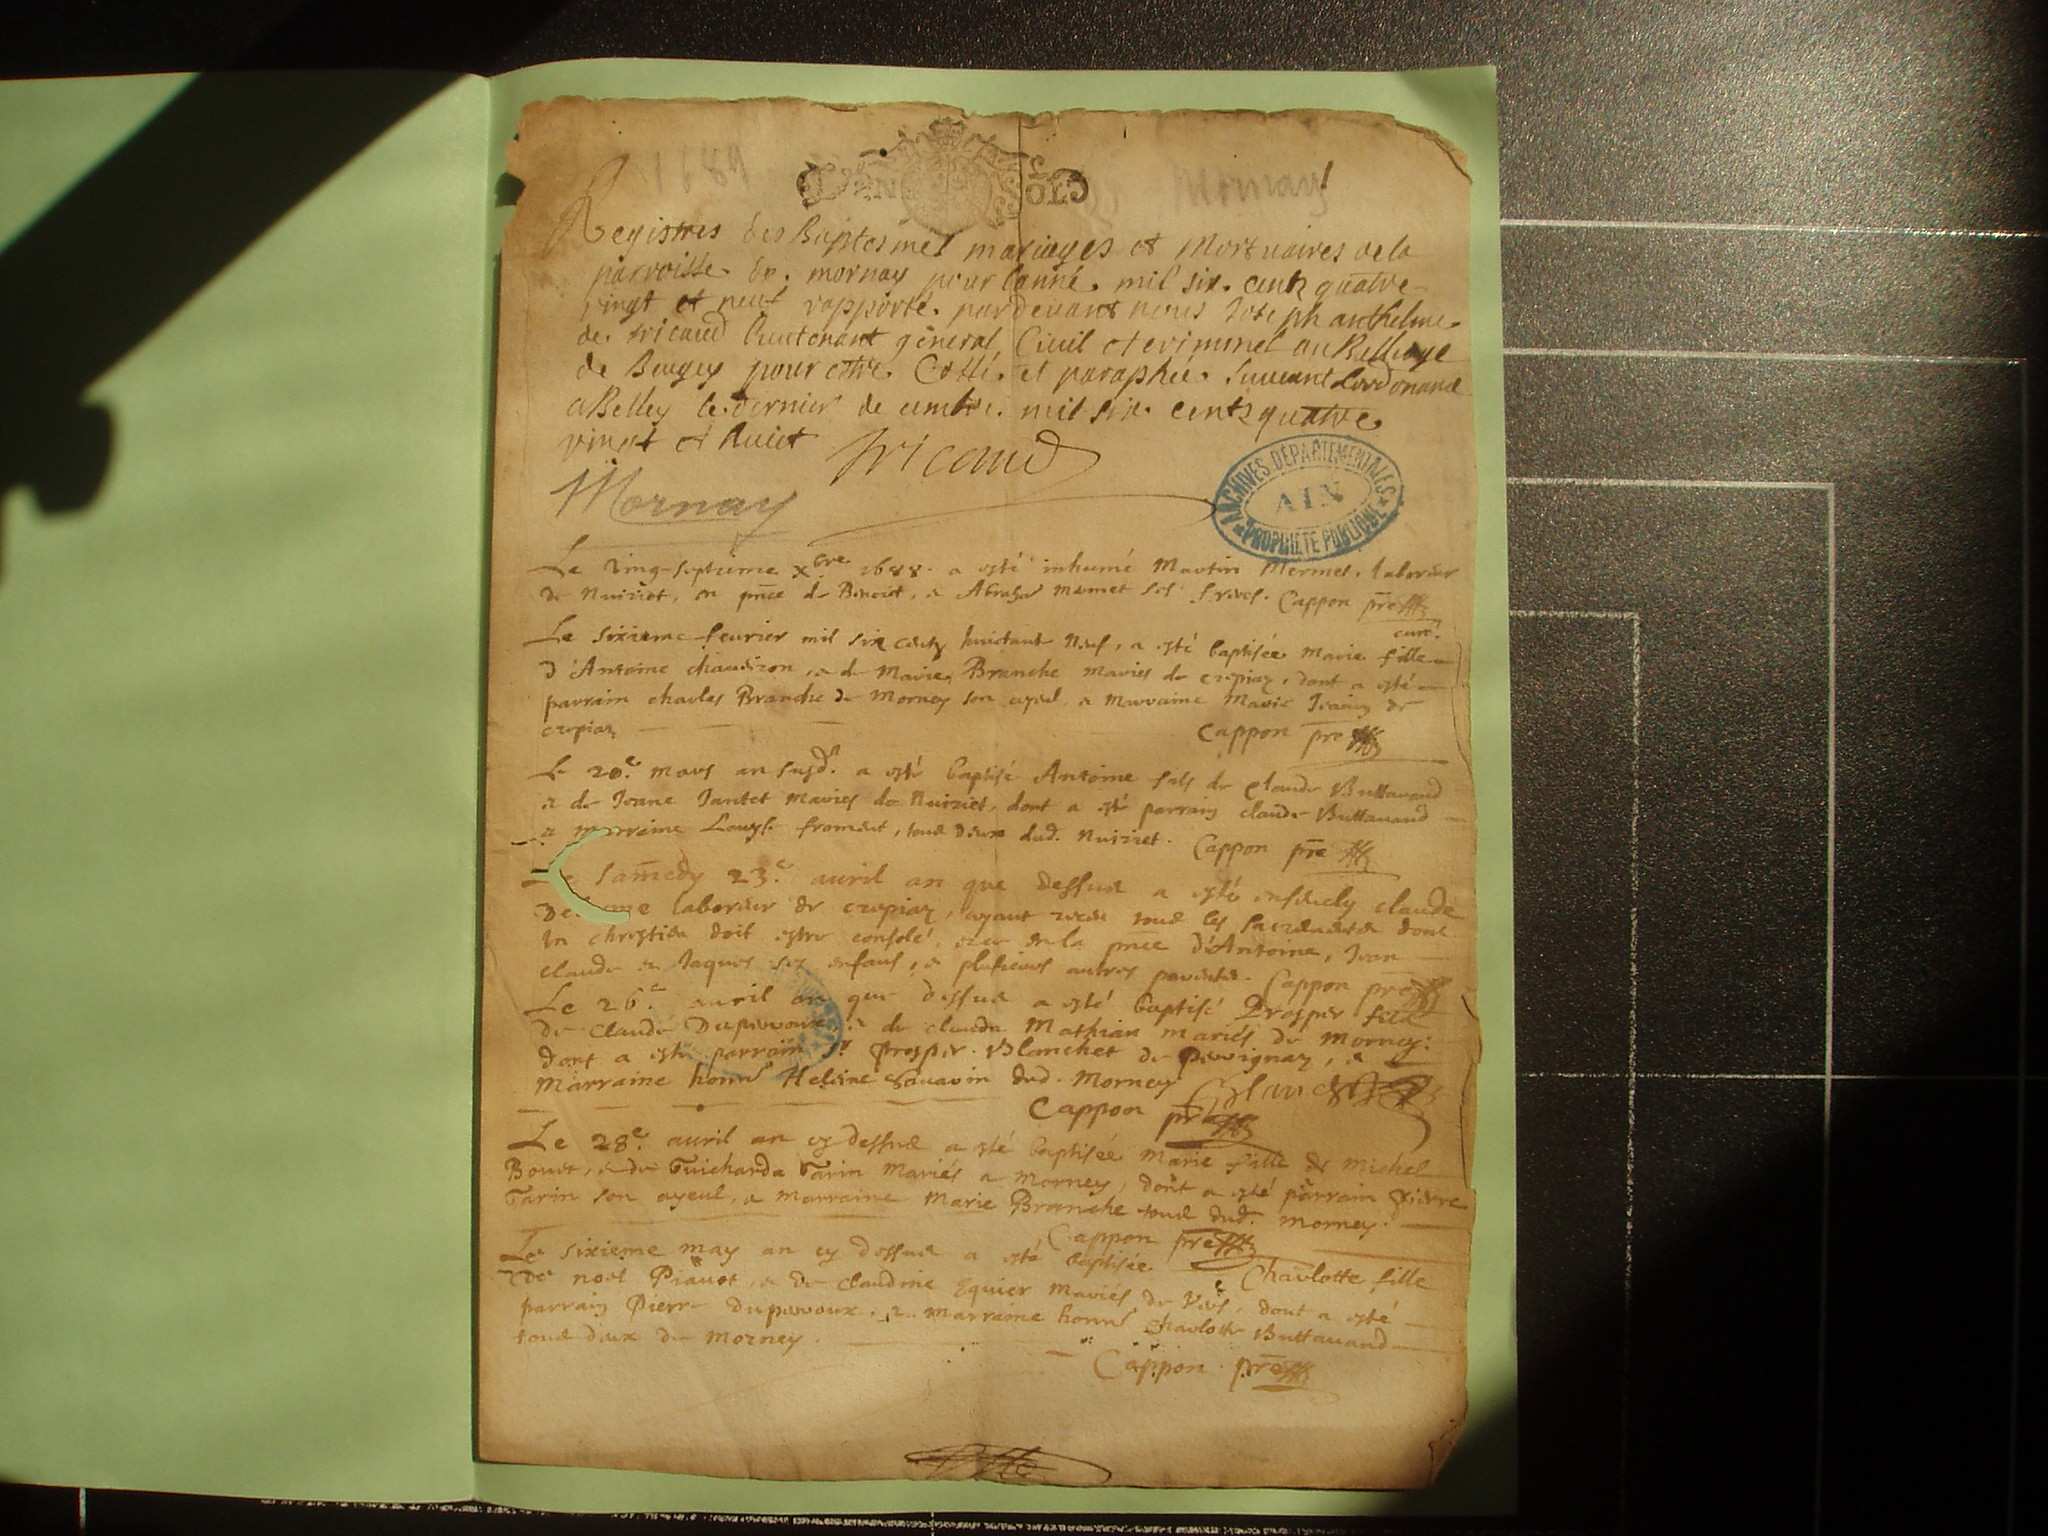 1689 Mornay
Registres des Baptesmes mariages et Mortuaires de la
parroisse de mornay pour lanné mil six centz quatre
vingt et neuf rapporté pardevant nous Joseph anthelme
de tricaud lieutenant general Civil et criminel au Balliage
de Bugey pour estre Cotté et paraphée suivant Lordonance
a Belley le dernier decembre mil six centz quatre
vingt et huict tricaud
Mornay
ARCHIVES DEPARTEMENTALES
AIN
PROPRIETE PUBLIQUE
Le vingt-septieme Xbre 1688 a esté inhumé Martin Mermet, laborier
de Nuiriet, en pnce de Benoit, & Abraham Mermet ses freres. Cappon pre
curé
Le sixieme feurier mil six centz huictante neuf, a esté baptisée Marie fille
d'Antoine chaudzon, & de Marie Branche mariés de crepiaz, dont a esté
parrain charles Branche de Morney son ayeul, & marraine Marie de
crepiaz Cappon pre
Le 20e mars an susd. a esté baptisé Antoine fils de Claude Buttavand
& de Jeane Jantet mariés de Nuiriet, dont a esté parrain claude Buttavand
& marraine Louyse froment, tous deux dud. Nuiriet. Cappon pre
Le samedy 23e auril an que dessus a esté enseuely claude
laborier de crepiaz, ayant receu tous les sacrements dont
un chrestien doit estre consolé, et ce en la pnce d'Antoine, Jean
claude & Jaques ses enfans, & plusieurs autres parents. Cappon pre
Le 26e auril an que dessus a esté baptisé Prosper fils
de Claude Duperroux & de clauda Mathian mariés de Morney:
dont a esté parrain sr Prosper Blanchet de Perrignaz, &
marraine honne Heleine Sauarin dud. Morney Blanchet
Cappon pre
Le 28e auril an cy dessus a esté baptisée Marie fille de Michel
Bouet, & de Guicharda Tarin mariés a Morney, dont a esté parrain Pierre
Tarin son ayeul, & marraine Marie Branche tous dud. Morney.
Cappon pre
Le sixieme may an cy dessus a esté baptisée Charlotte fille
de noel Piauot, & de Claudine Equier mariés de Vers, dont a esté
parrain Pierre duperroux, & marraine honne charlotte Buttavand
tous deux de Morney.
Cappon pre